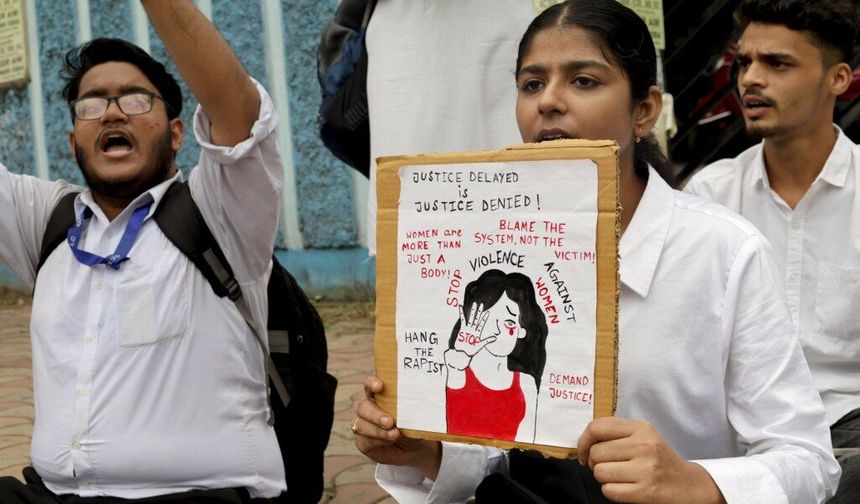 JUSTICE DELAYED
is
JUSTICE DENIED!
WOMEN are
MORE THAN
JUST A
BODY!
BLAME THE
SYSTEM, NOT THE
VICTIM!
STOP
VIOLENCE
AGAINST
WOMEN
STOP
HANG
THE
RAPIST
DEMAND
JUSTICE!